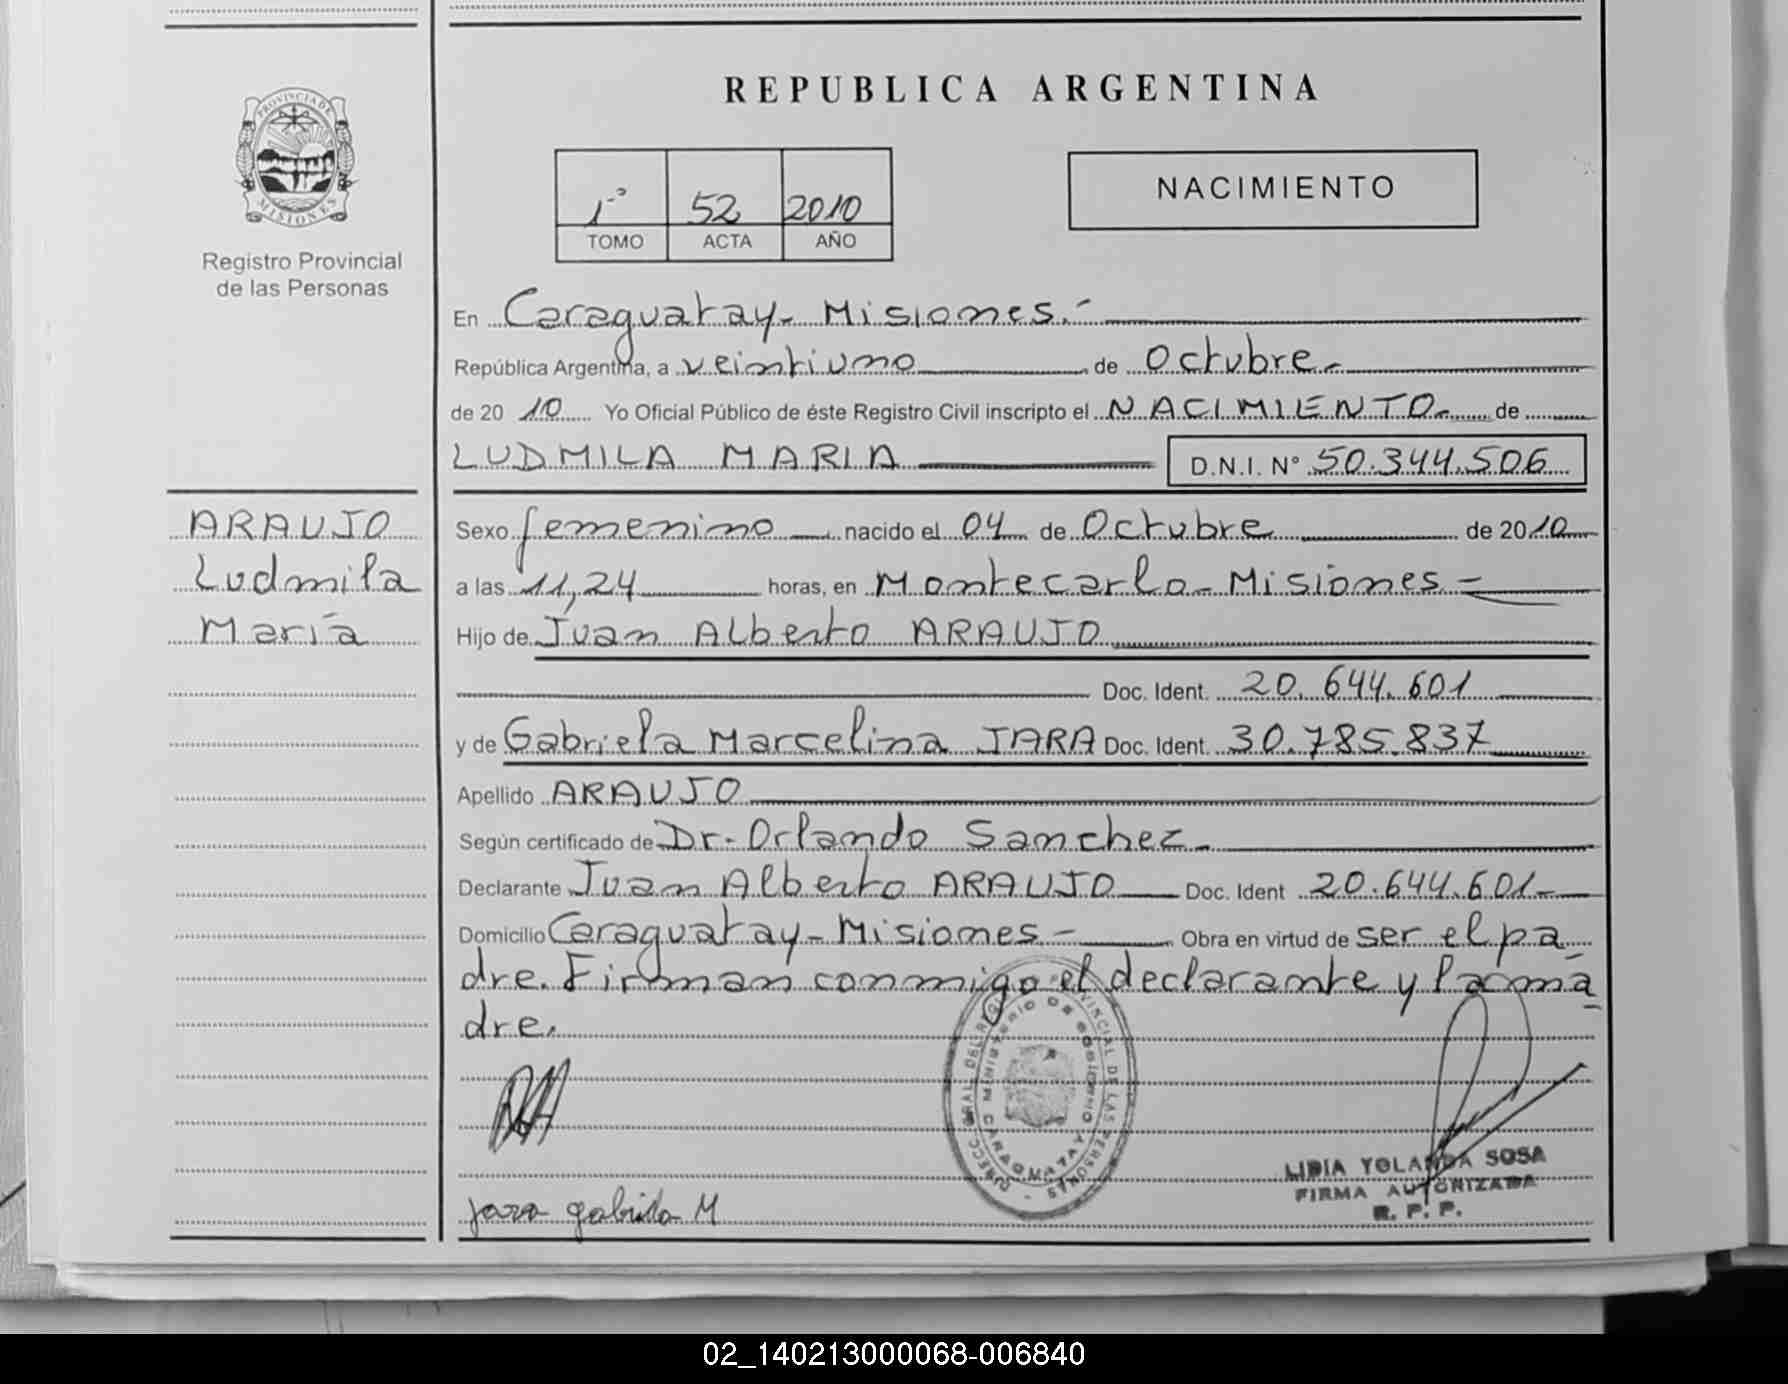 REPUBLICA ARGENTINA
PROVINCIA DE
MISIONES
Registro Provincial
de las Personas
1° 52 2010
TOMO ACTA AÑO
NACIMIENTO
En Caraguatay- Misiones.-
República Argentina, a veintiuno de Octubre.-
de 2010 Yo Oficial Público de éste Registro Civil inscripto el NACIMIENTO.- de
LUDMILA MARIA D.N.I. N° 50.344.506
ARAUJO
Ludmila
María
Sexo femenino nacido el 04 de Octubre de 2010
a las 11,24 horas, en Montecarlo- Misiones-
Hijo de Juan Alberto ARAUJO
Doc. Ident. 20.644.601
y de Gabriela Marcelina JARA Doc. Ident. 30.785.837
Apellido ARAUJO
Según certificado de Dr. Orlando Sanchez.-
Declarante Juan Alberto ARAUJO Doc. Ident 20.644.601-
Domicilio Caraguatay- Misiones- Obra en virtud de ser el pa
dre. Firman conmigo el declarante y la ma
dre.
LIDIA YOLANDA SOSA
FIRMA AUTORIZADA
R. P. P.
jara gabriela M
02_140213000068-006840